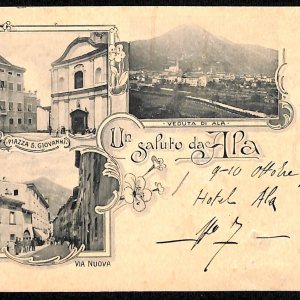 PIAZZA S. GIOVANNI
VEDUTA DI ALA
Un saluto da Ala
9-10 Ottobre
Hotel Ala
No 7
VIA NUOVA